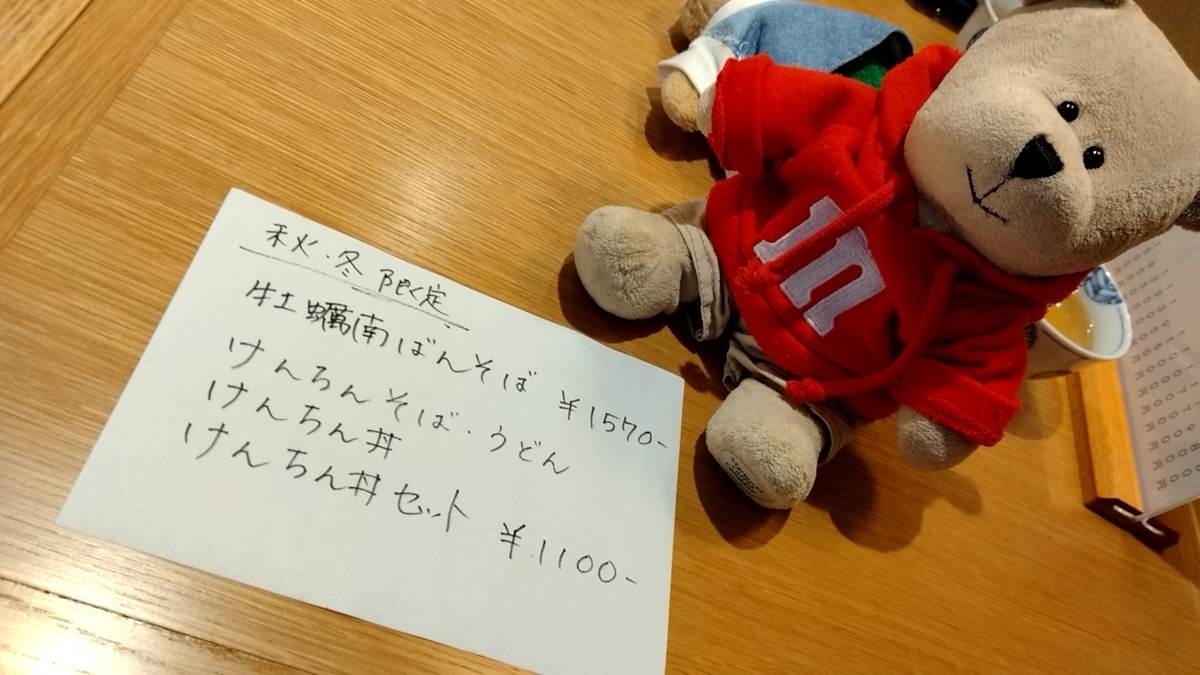 秋・冬 限定
牡蠣南ばんそば ¥1570-
けんちんそば・うどん
けんちん丼
けんちん丼セット ¥1100-
m